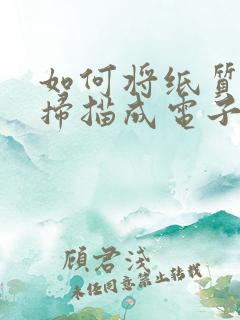 如何将纸质
掃描成电子
顾君浅
未经同意禁止转载